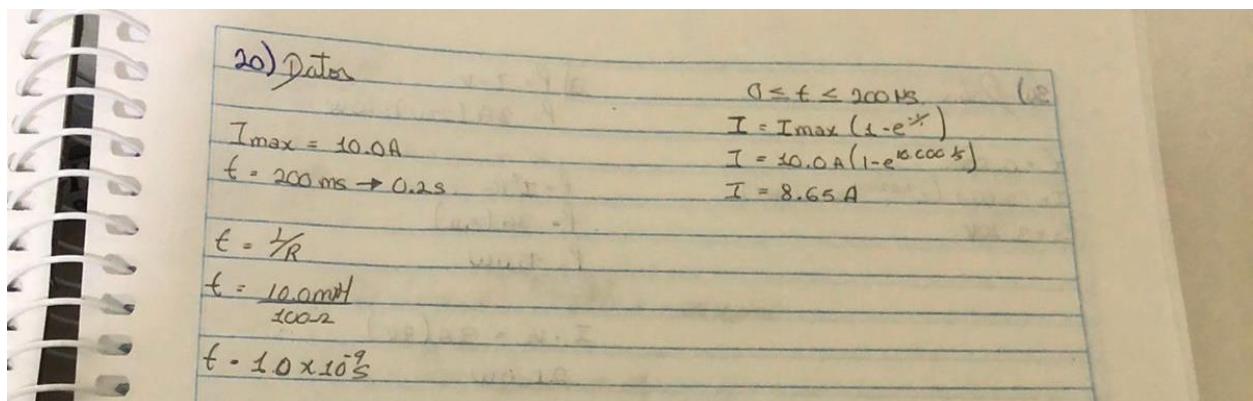 20) Datos
Imax = 10.0A
t = 200 ms → 0.2s
t = L/R
t = 10.0mH
100Ω
t = 1.0 x 10⁻⁴s
0 ≤ t ≤ 200 μs
I = Imax (1-e
I = 10.0A(1-e^10.000
I = 8.65A